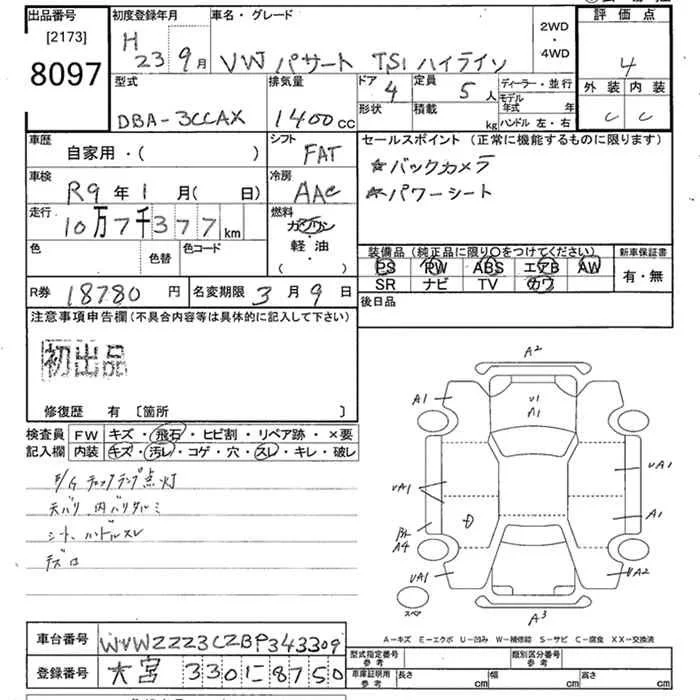 出品番号 初度登録年月 車名・グレード 評価点
[2173]
8097
H 23 9月 VW パサート TSI ハイライン
2WD
・
4WD
4
型式 排気量 ドア 4 定員 5人 ディーラー・並行 外装 内装
DBA-3CCAX 1400cc 形状 積載 kg モデル年式 年 ハンドル 左・右 C C
車歴 自家用・( ) シフト FAT セールスポイント (正常に機能するものに限ります)
☆バックカメラ
☆パワーシート
車検 R9年1月( 日) 冷房 AAC
走行 10万7千377km 燃料 ガソリン・軽油・( )
色 色替 色コード
装備品(純正品に限り○をつけてください) 新車保証書
PS PW ABS エアB AW 有・無
SR ナビ TV カワ
R券 18780円 名変期限 3月9日 後日品
注意事項申告欄(不具合内容等は具体的に記入して下さい)
初出品
修復歴 有 〔箇所 〕
検査員 FW キズ・飛石・ヒビ割・リペア跡・×要
記入欄 内装 キズ・汚レ・コゲ・穴・スレ・キレ・破レ
E/G チェックランプ点灯
天バリ、内バリダルミ
シート、ハンドルスレ
A2
A1
U1
A1
UA1
UA1
A1
A4
UA1
UA2
A3
スペア
A-キズ E-エクボ U-凹み W-補修跡 S-サビ C-腐食 XX-交換済
車台番号 WVWZZZ3CZBP343309
登録番号 大宮 330 に 8750
型式指定番号 参考 類別区分番号 参考
車庫証明用 参考 長さ cm 幅 cm 高さ cm